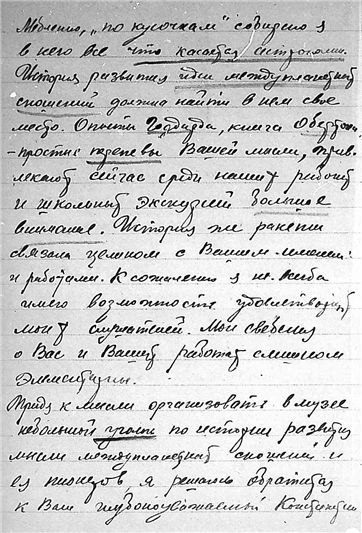 Медленно, "по кусочкам" собираю я
в него все что касается астрономии.
История развития идеи междупланетных
сношений должна найти в нем свое
место. Опыты Годдарда, книга Оберта
вашей мысли, прив-
лекают сейчас среди наших рабочих
и школьных экскурсий большое
внимание. История же ракеты
связана целиком с Вашим именем
и работами. К сожалению я не всегда
имею возможность удовлетворить
моих слушателей. Мои сведения
о Вас и Ваших работах слишком

Придя к мысли организовать в музее
небольшой уголок по истории развития
мысли междупланетных сношений и
ея пионеров, я решаюсь обратиться
к Вам глубокоуважаемый Константин